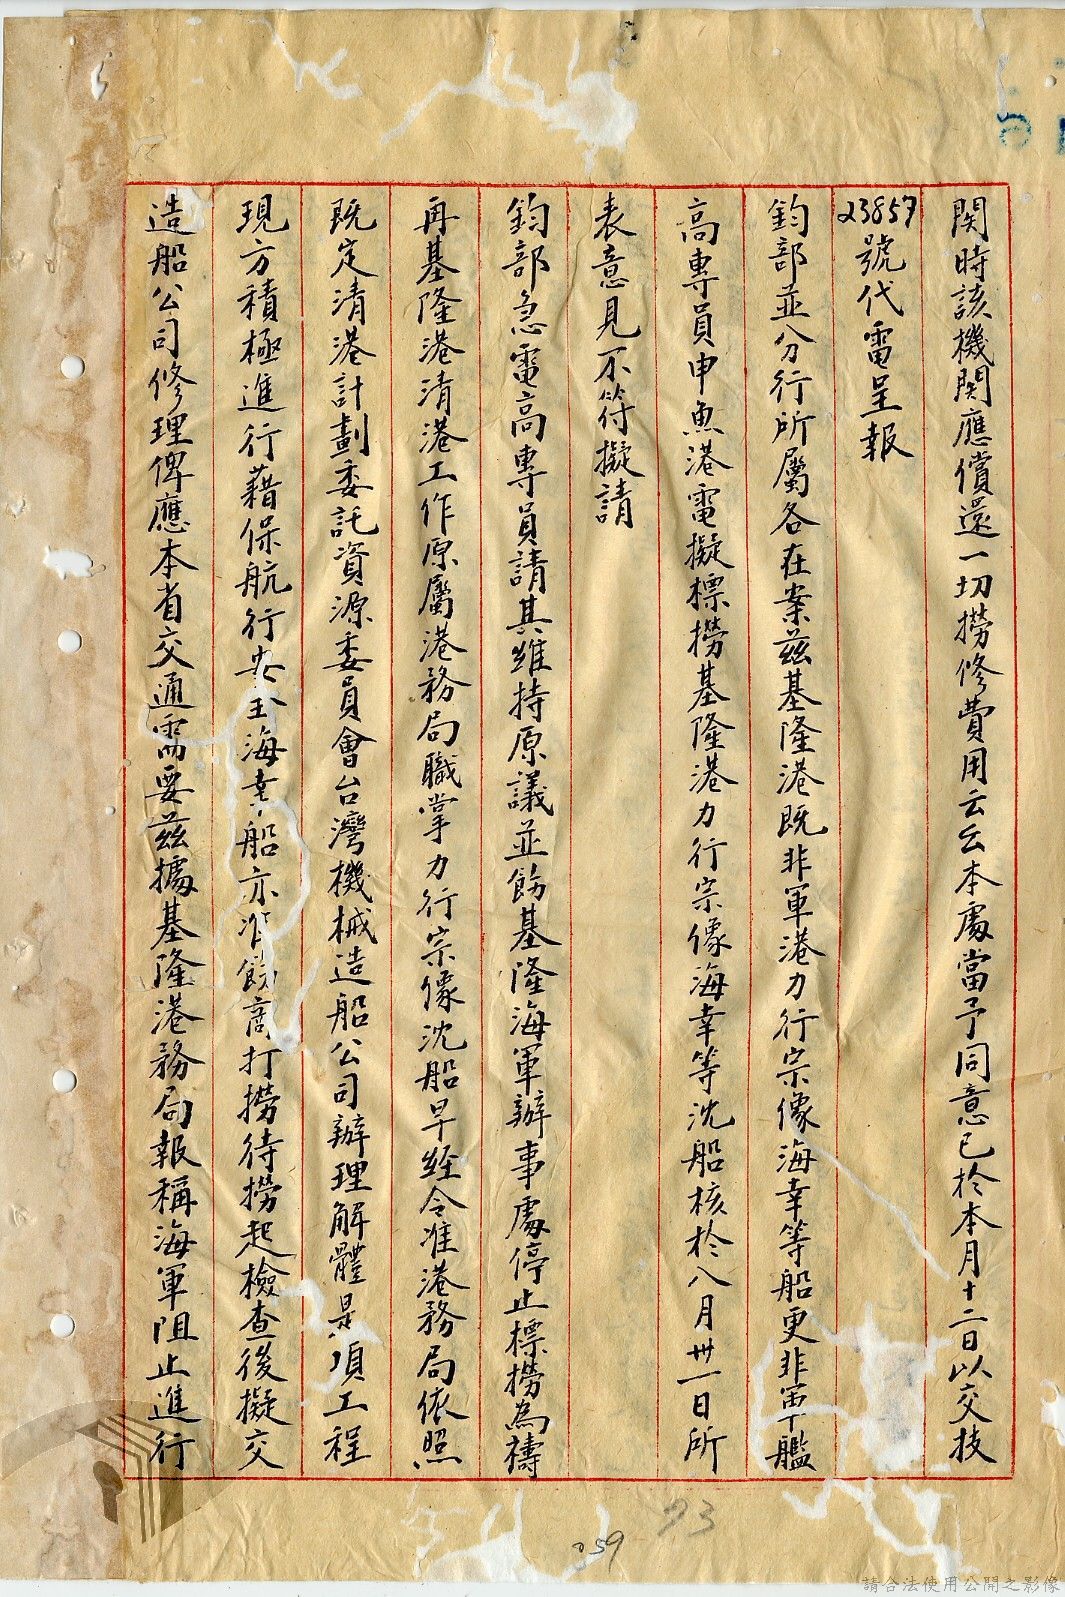 関時該機関應償還一切撈修費用云云本處當予同意已於本月十二日以交技
23857號代電呈報
鈞部並分行所屬各在案茲基隆港既非軍港力行宗像海幸等船更非軍艦
高專員申魚港電擬標撈基隆港力行宗像海幸等沈船核於八月卅一日所
表意見不符擬請
鈞部急電高專員請其維持原議並飭基隆海軍辦事處停止標撈為禱
再基隆港清港工作原屬港務局職掌力行宗像沈船早經令准港務局依照
既定清港計劃委託資源委員會台灣機械造船公司辦理解體是項工程
現方積極進行藉保航行安全海幸船亦准飭商打撈待撈起檢查後擬交
造船公司修理俾應本省交通需要茲據基隆港務局報稱海軍阻止進行
73
059
請合法使用公開之影像